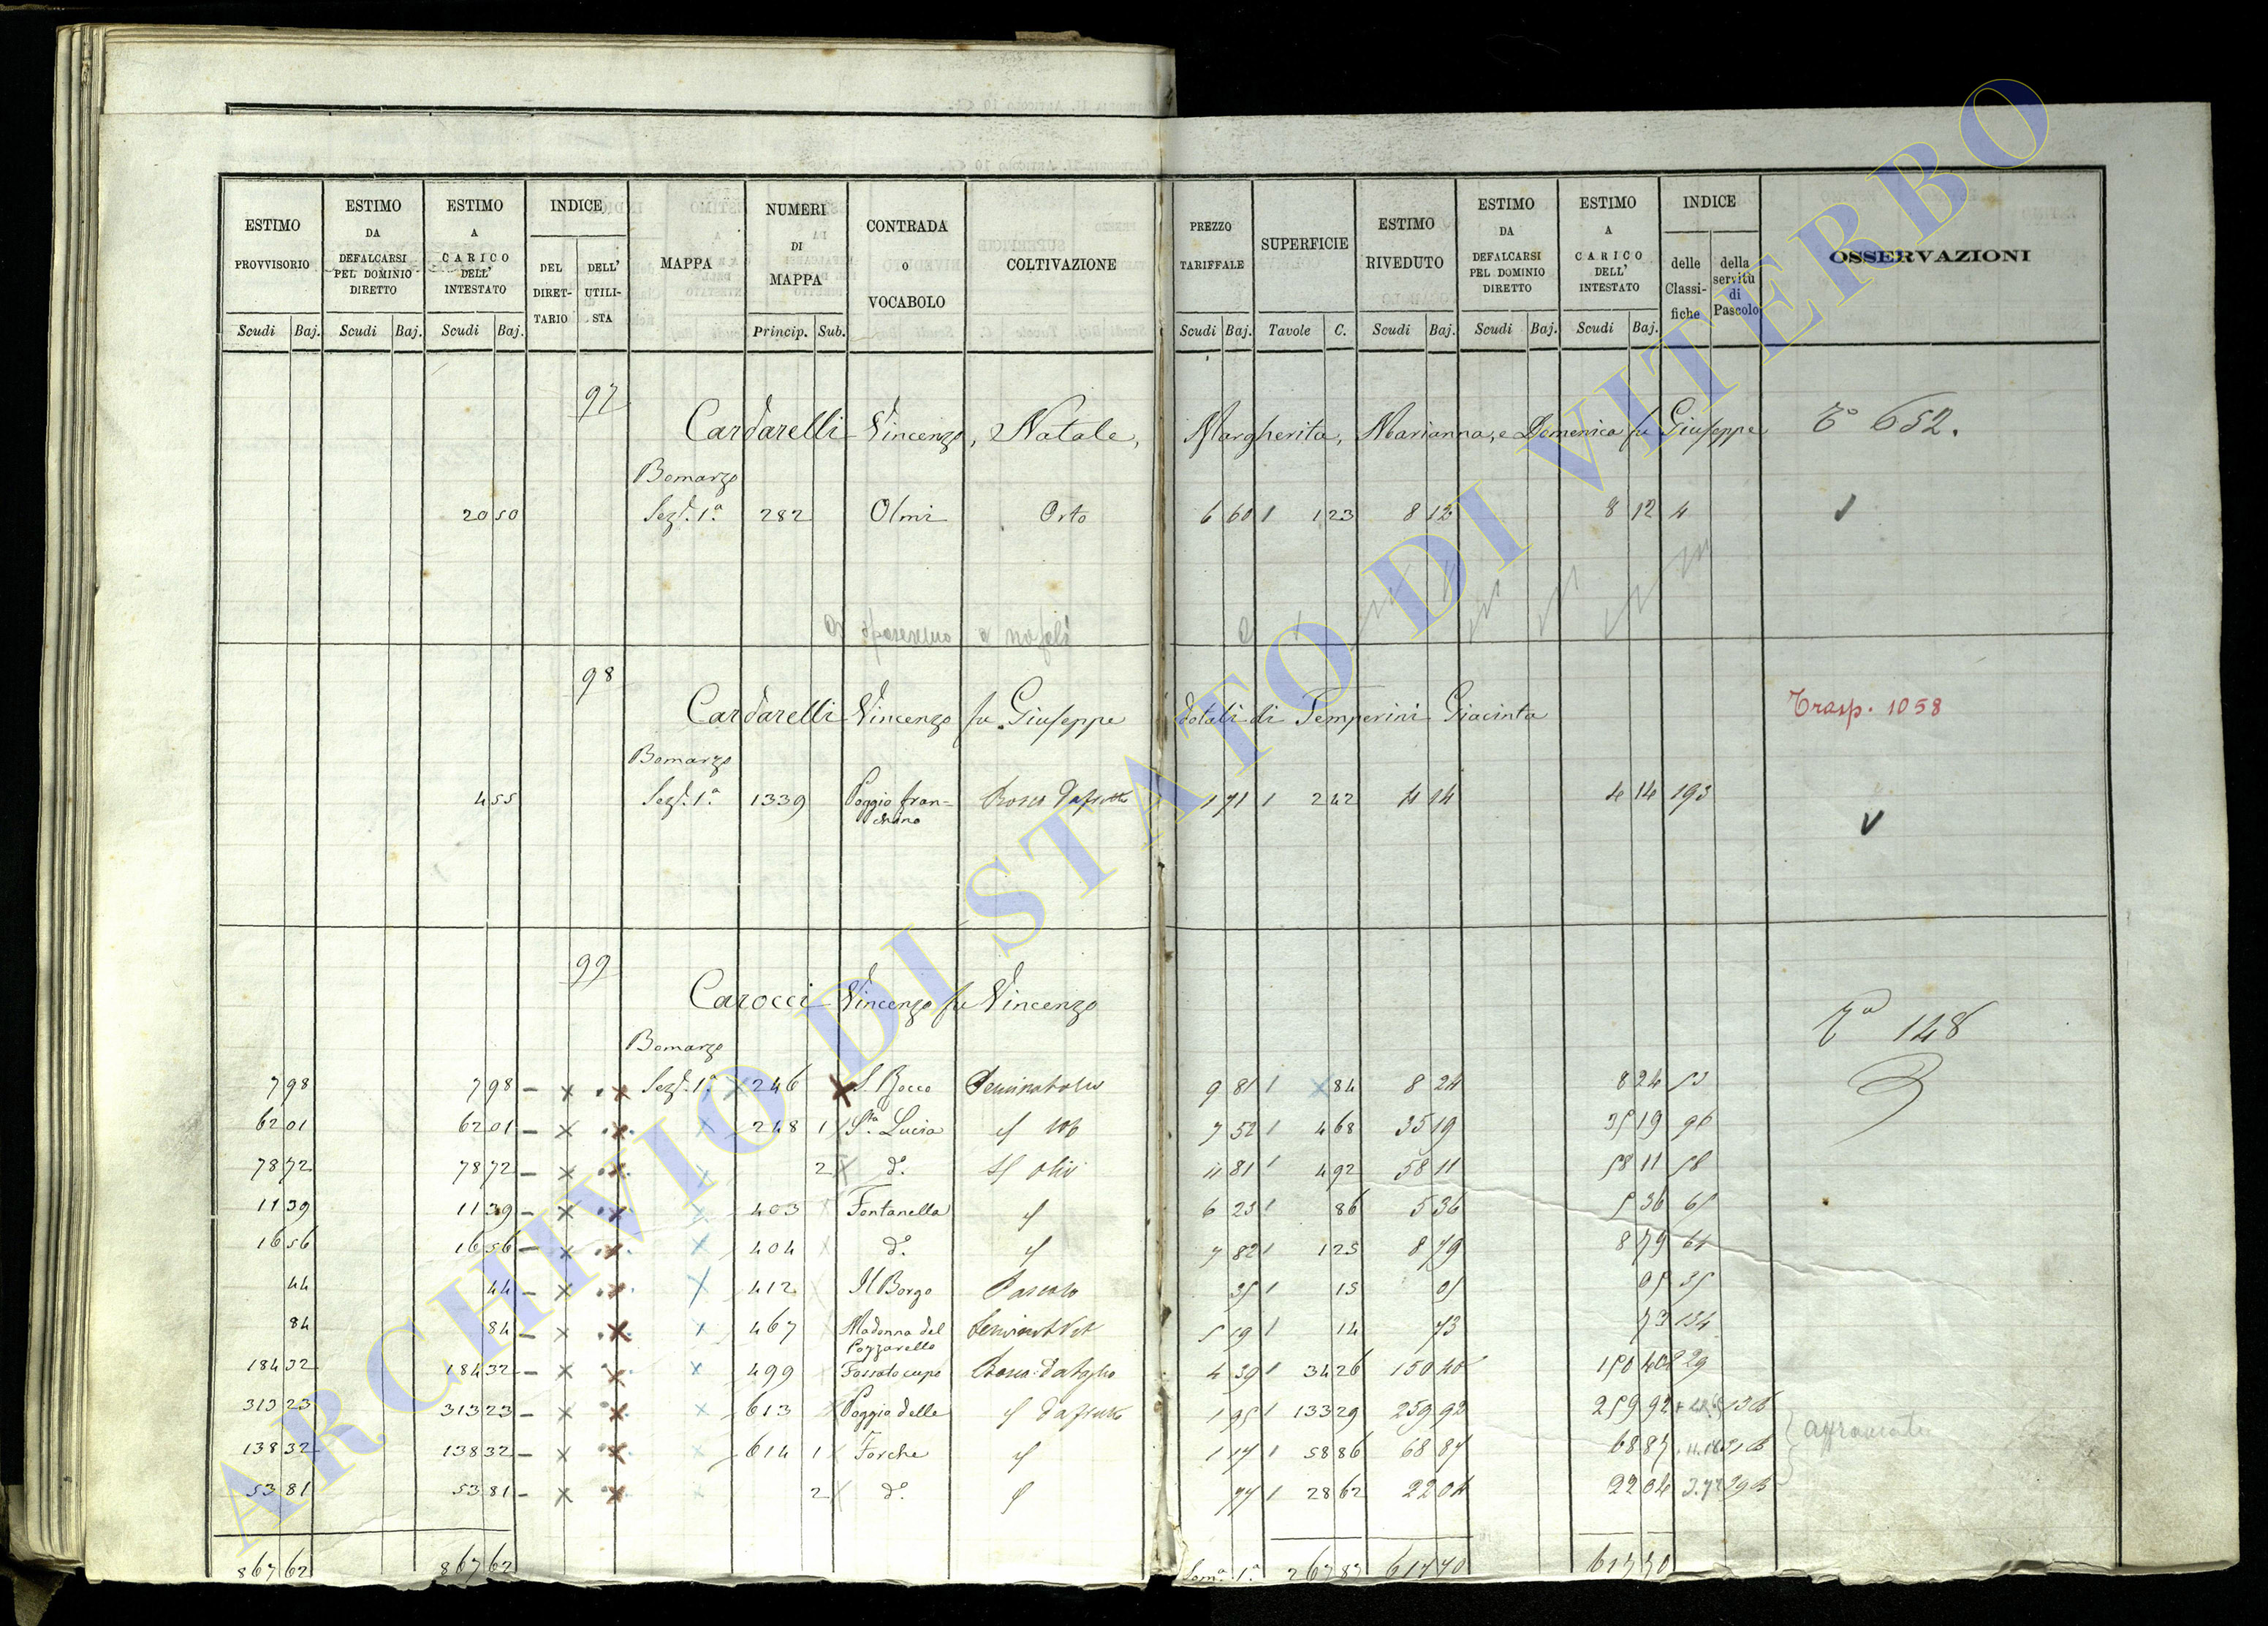 ESTIMO PROVVISORIO Scudi Baj. ESTIMO DA DEFALCARSI PEL DOMINIO DIRETTO Scudi Baj. ESTIMO A CARICO DELL' INTESTATO Scudi Baj. INDICE DEL DIRETTARIO DELL' UTILISTA MAPPA NUMERI DI MAPPA Princip. Sub. CONTRADA O VOCABOLO COLTIVAZIONE PREZZO TARIFFALE Scudi Baj. SUPERFICIE Tavole C. ESTIMO RIVEDUTO Scudi Baj. ESTIMO DA DEFALCARSI PEL DOMINIO DIRETTO Scudi Baj. ESTIMO A CARICO DELL' INTESTATO Scudi Baj. INDICE delle Classifiche della servitù di Pascolo OSSERVAZIONI
97
Cardarelli Vincenzo, Natale, Margherita, Marianna, e Domenica fu Giuseppe 652.
Bomarzo
20 50 Sez. 1ª 282 Olmi Orto 6 60 1 1 23 8 12 8 12 4
98
Cardarelli Vincenzo fu Giuseppe dotali di Temperini Giacinta Trasp. 1058
Bomarzo
4 55 Sez. 1ª 1339 Poggio fran= 1 71 1 2 42 4 14 4 14 193
99
Carocci Vincenzo fu Vincenzo 148
Bomarzo
7 98 7 98 Sez. 1ª 246 S. Rocco 9 81 1 84 8 24 8 24
62 01 62 01 248 1 Sta Lucia 7 52 1 4 68 35 19 35 19
78 72 78 72 2 do 11 81 1 4 92 58 11 58 11 58
11 39 11 39 403 Fontanella 6 23 1 86 5 36 5 36
16 56 16 56 404 do 7 82 1 1 25 8 79 8 79
44 44 412 Il Borgo Pascolo 35 1 15 05 05 35
84 84 467 Madonna del Pozzarello 5 19 1 14 73 73 134
184 32 184 32 499 Fossato cupo 4 39 1 34 26 150 40 150 40
313 23 313 23 613 Poggio delle 1 95 1 133 29 259 92 259 92
138 32 138 32 614 1 Forche 1 17 1 58 86 68 87 68 87
53 81 53 81 2 do 77 1 28 62 22 04 22 04
867 62 867 62 Somª 1ª 267 87 617 70 617 70
ARCHIVIO DI STATO DI VITERBO